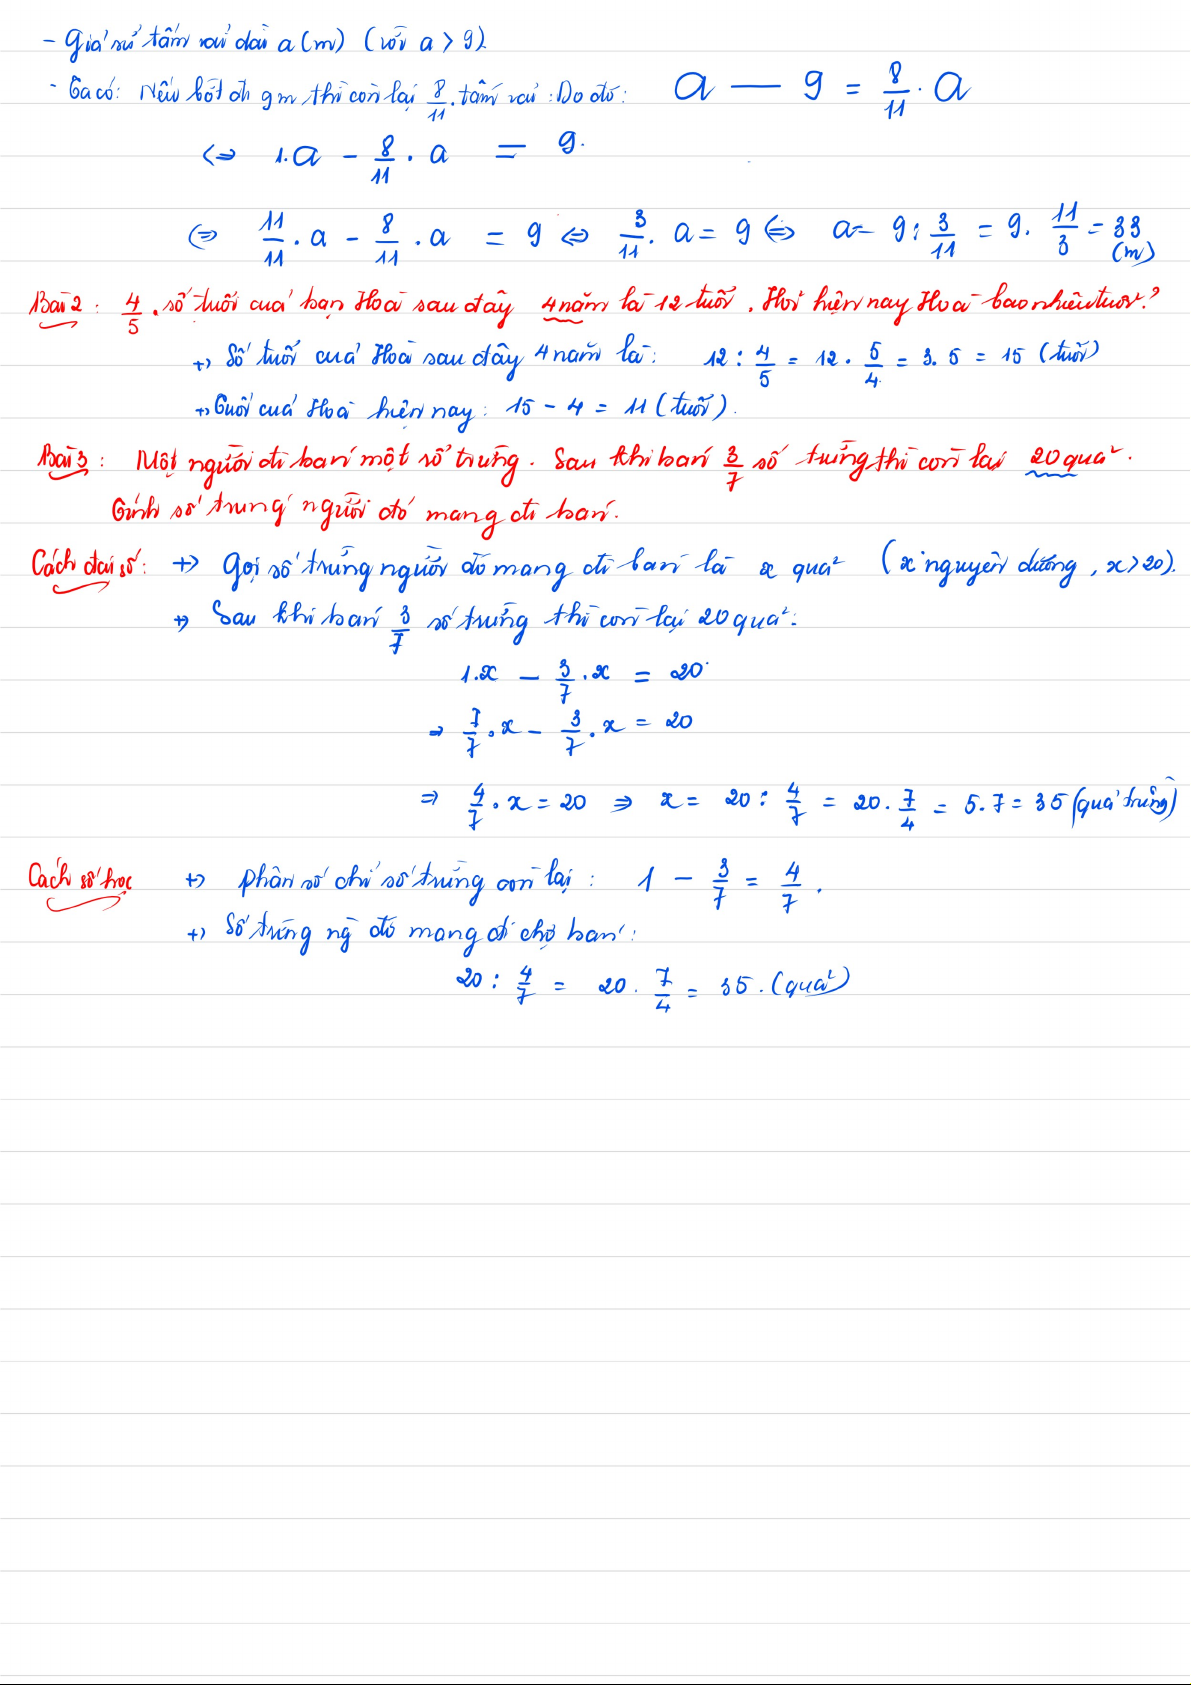 - Giả sử tấm vải dài a (m) (với a > 9)
- Ta có: Nếu bớt đi 9m thì còn lại 8/11 . tấm vải : Do đó: a — 9 = 8/11 . a
⇔ 1.a - 8/11 . a = 9.
⇔ 11/11 . a - 8/11 . a = 9 ⇔ 3/11 . a = 9 ⇔ a = 9 : 3/11 = 9 . 11/3 = 33 (m)
Bài 2 : 4/5 . số tuổi của bạn Hoà sau đây 4 năm là 12 tuổi . Hỏi hiện nay Hoà bao nhiêu tuổi ?
+) Số tuổi của Hoà sau đây 4 năm là : 12 : 4/5 = 12 . 5/4 = 3. 5 = 15 (tuổi)
+) Tuổi của Hoà hiện nay : 15 - 4 = 11 (tuổi).
Bài 3 : Một người đi bán một số trứng . Sau khi bán 3/7 số trứng thì còn lại 20 quả .
Tính số trứng người đó mang đi bán .
Cách đại số : +) Gọi số trứng người đó mang đi bán là x quả (x nguyên dương , x > 20).
+) Sau khi bán 3/7 số trứng thì còn lại 20 quả :
1.x - 3/7 . x = 20
⇒ 7/7 . x - 3/7 . x = 20
⇒ 4/7 . x = 20 ⇒ x = 20 : 4/7 = 20 . 7/4 = 5. 7 = 35 (quả trứng)
Cách số học +) Phân số chỉ số trứng còn lại : 1 - 3/7 = 4/7 .
+) Số trứng ng đó mang đi chợ bán :
20 : 4/7 = 20 . 7/4 = 35 . (quả)